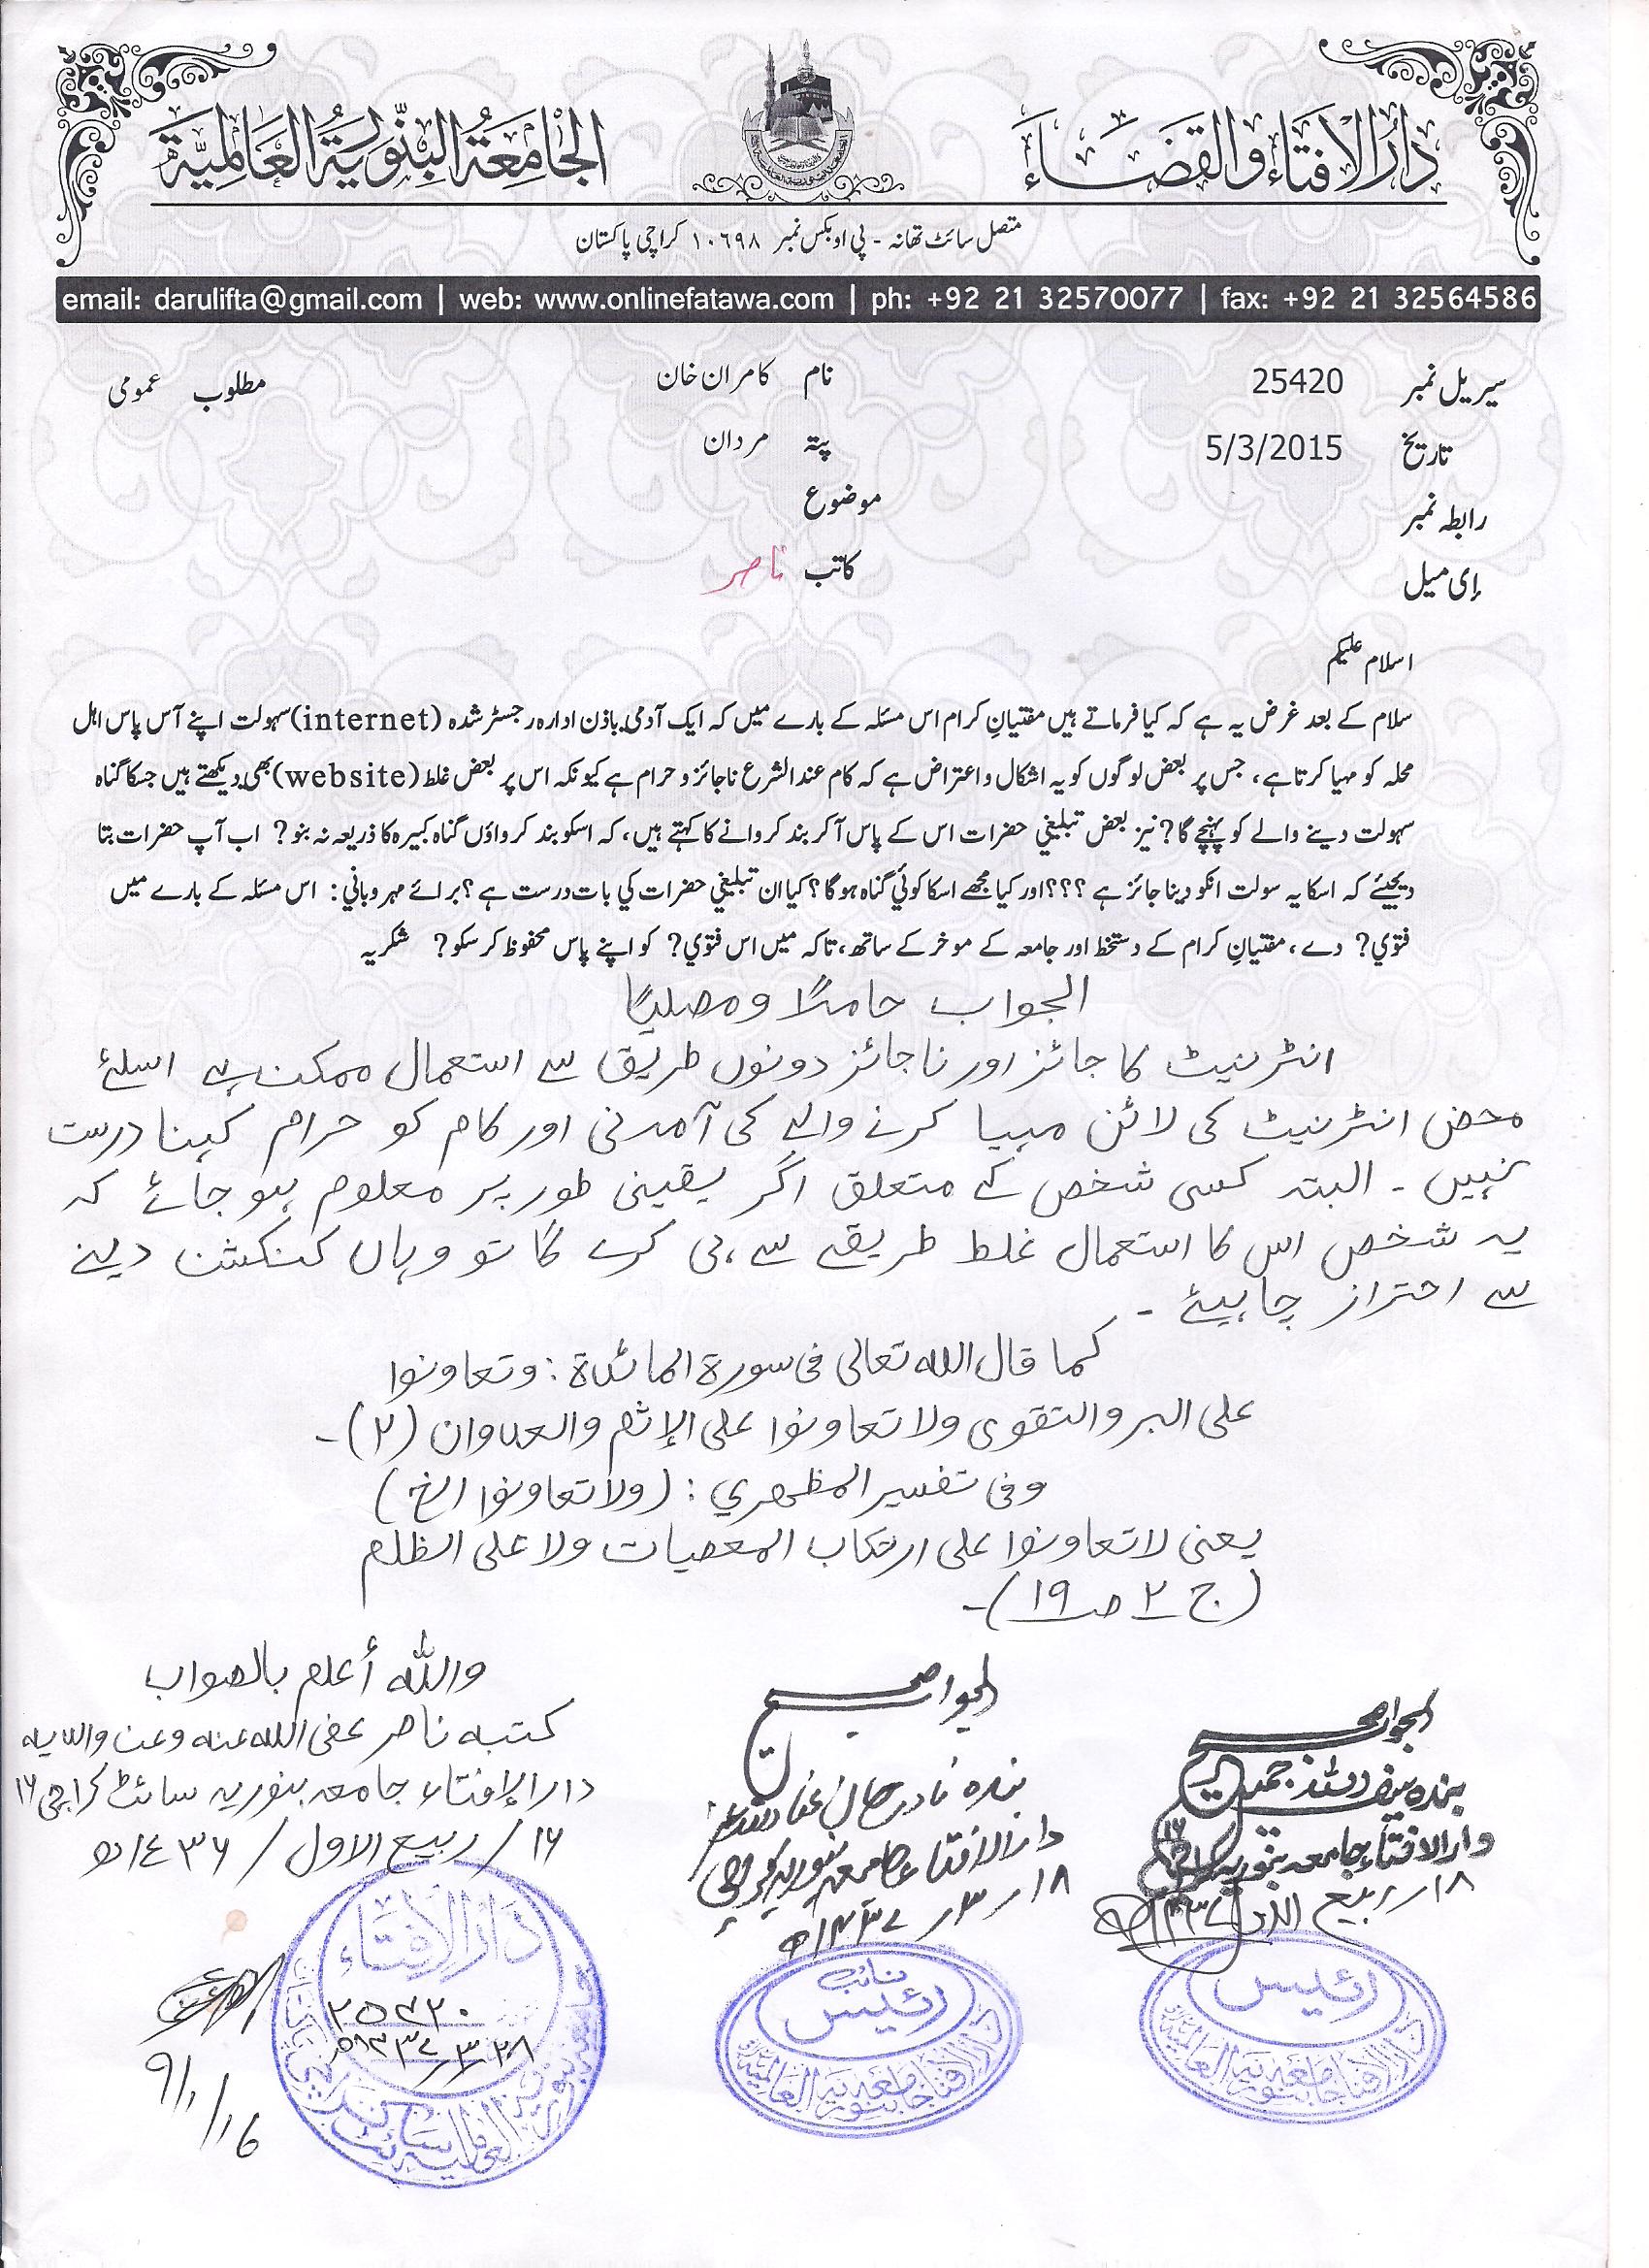 دَارُالْاِفْتَاءِ وَالْقَضَاءِ
الْجَامِعَةُ الْبِنُّوْرِيَّةُ الْعَالَمِيَّة
متصل سائٹ تھانہ - پی او بکس نمبر ۱۰۶۹۸ کراچی پاکستان
email: darulifta@gmail.com | web: www.onlinefatawa.com | ph: +92 21 32570077 | fax: +92 21 32564586
سیریل نمبر 25420 نام کامران خان مطلوب عمومی
تاریخ 5/3/2015 پتہ مردان
رابطہ نمبر موضوع
إی میل کاتب ناصر
اسلام علیکم
سلام کے بعد غرض یہ ہے کہ کیا فرماتے ہیں مفتیانِ کرام اس مسئلہ کے بارے میں کہ ایک آدمی باذن ادارہ رجسٹر شدہ (internet) سہولت اپنے آس پاس اہل
محلہ کو مہیا کرتا ہے، جس پر بعض لوگوں کو یہ اشکال و اعتراض ہے کہ کام عند الشرع ناجائز و حرام ہے کیونکہ اس پر بعض غلط (website) بھی دیکھتے ہیں جسکا گناہ
سہولت دینے والے کو پہنچے گا? نیز بعض تبلیغي حضرات اس کے پاس آکر بند کروانے کا کہتے ہیں، کہ اسکو بند کرواؤں گناہ کبیرہ کا ذریعہ نہ بنو? اب آپ حضرات بتا
دیجیئے کہ اسکا یہ سولت انکو دینا جائز ہے ؟؟؟ اور کیا مجھے اسکا کوئي گناہ ہوگا؟ کیا ان تبلیغي حضرات کي بات درست ہے؟ برائے مہروباني: اس مسئلہ کے بارے میں
فتوي? دے، مفتیانِ کرام کے دستخط اور جامعہ کے موخر کے ساتھ، تاکہ میں اس فتوي? کو اپنے پاس محفوظ کر سکو? شکریہ
الجواب حامدًا ومصلیًا
انٹرنیٹ کا جائز اور ناجائز دونوں طریق سے استعمال ممکن ہے اسلئے
محض انٹرنیٹ کی لائن مہیا کرنے والے کی آمدنی اور کام کو حرام کہنا درست
نہیں ۔ البتہ کسی شخص کے متعلق اگر یقینی طور پر معلوم ہو جائے کہ
یہ شخص اس کا استعمال غلط طریقے سے ہی کرے گا تو وہاں کنکشن دینے
سے احتراز چاہیئے ۔
کما قال اللہ تعالی فی سورۃ المائدۃ : وتعاونوا
علی البر والتقوی ولا تعاونوا علی الإثم والعدوان (۲)۔
وفی تفسیر المظہري : (ولا تعاونوا الخ)
یعنی لا تعاونوا علی ارتکاب المعصیات ولا علی الظلم
(ج ۲ صـ ۱۹)۔
واللہ أعلم بالصواب
کتبہ ناصر عفی اللہ عنہ وعن والدیہ
دار الإفتاء جامعہ بنوریہ سائٹ کراچی ۱۶
۱۶/ ربیع الاول / ۱٤۳۶ھ
الجواب صحیح
بندہ نادر جان عفا اللہ عنہ
دار الافتاء جامعہ بنوریہ کراچی
۱۸ ۳ ۱۴۳۷ھ
الجواب صحیح
بندہ سیف اللہ جمیل
دار الافتاء جامعہ بنوریہ کراچی ۱۶
۱۸ ربیع الاول ۱۴۳۷ھ
دار الافتاء
۲۵۴۲۰
۲۸ ۳ ۱۴۳۷ھ
نائب
رئیس
دار الافتاء جامعہ بنوریہ العالمیہ
رئیس
دار الافتاء جامعہ بنوریہ العالمیہ
9/1/16